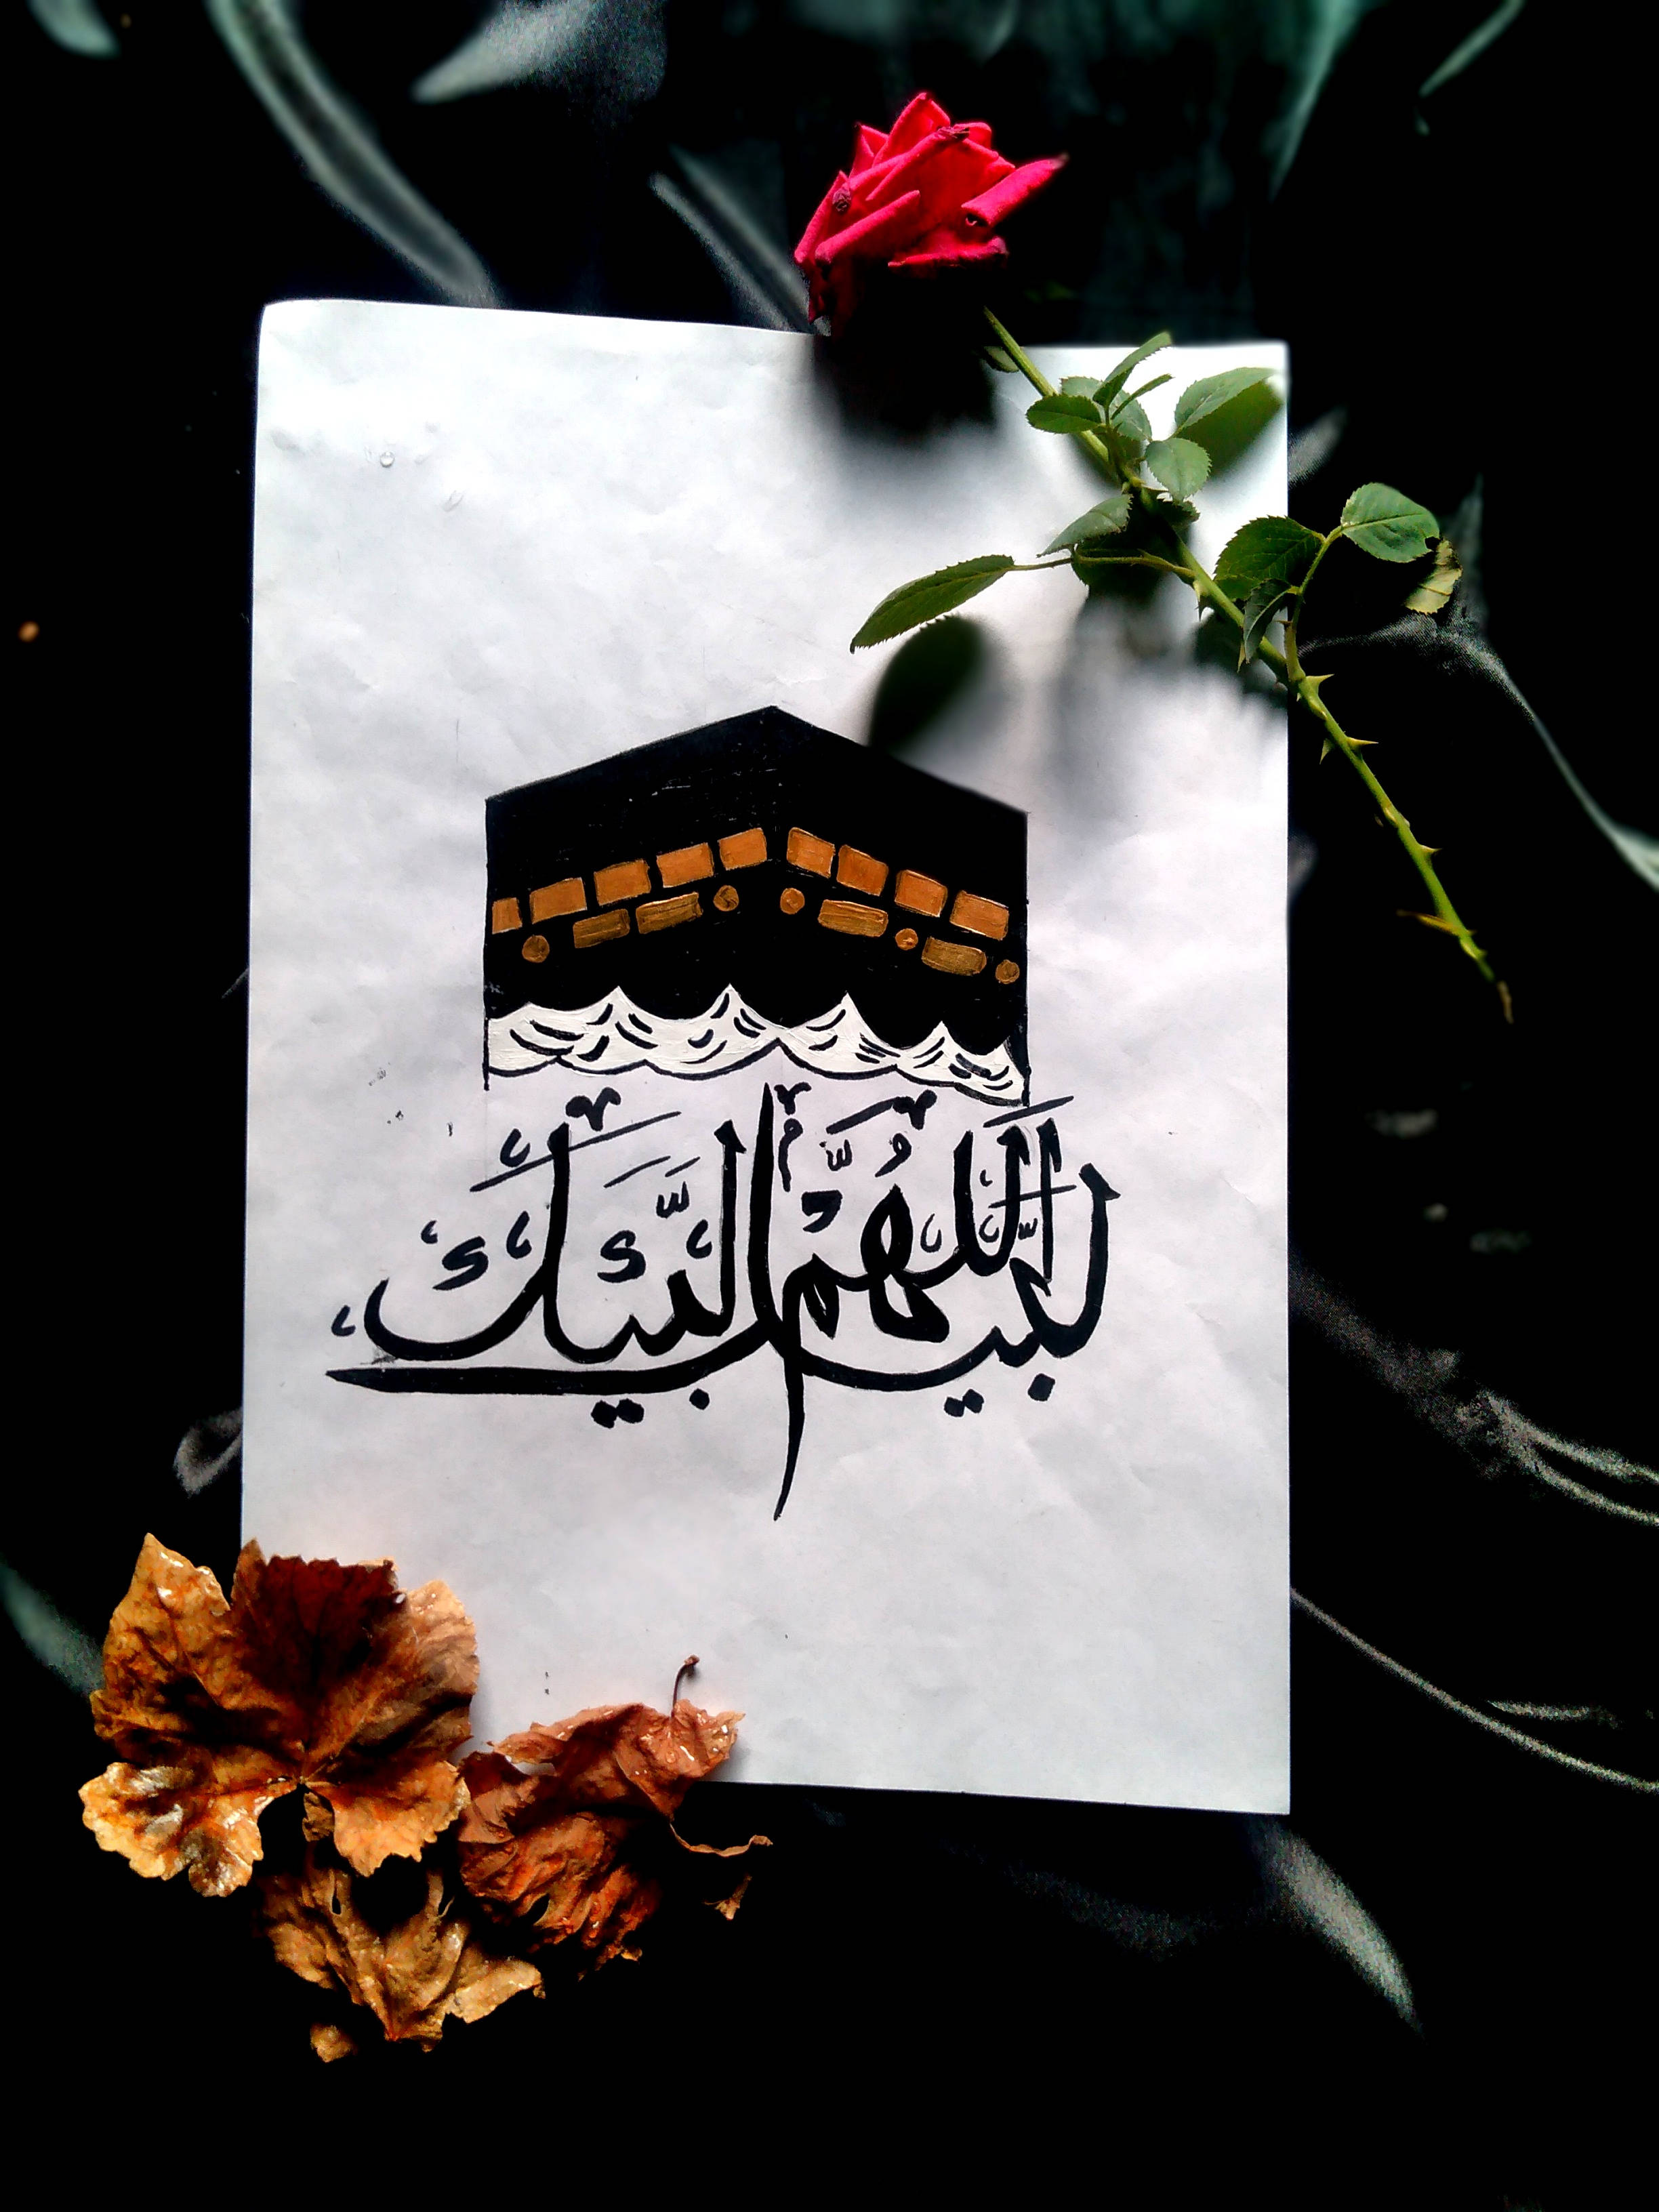 لَبَّيْكَ اللّٰهُمَّ لَبَّيْكَ